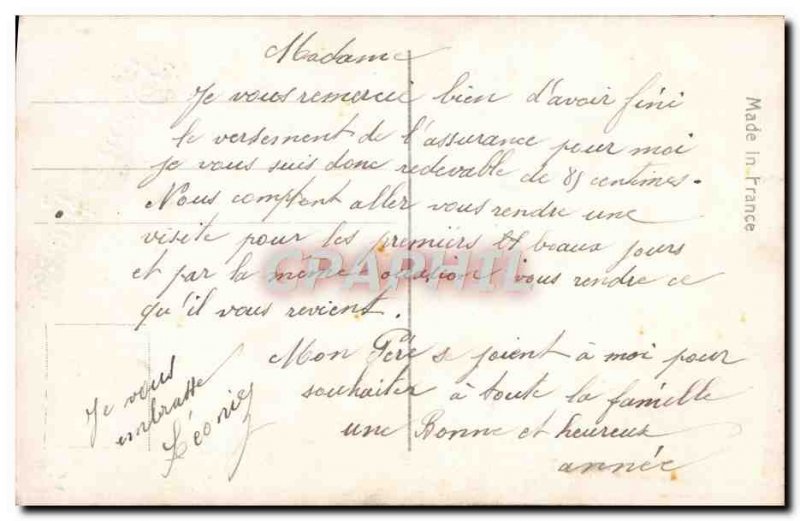 Madame
Je vous remercie bien d'avoir fini
le versement de l'assurance pour moi
je vous suis donc redevable de 85 centimes.
Nous comptent aller vous rendre une
visite pour les premiers beaux jours
et par la même ocasion vous rendre ce
qu'il vous revient.
Mon Père s joient à moi pour
souhaiter à toute la famille
une Bonne et heureux
année
Je vous
embrasse
Léonie
Made in France
CPAPHIL